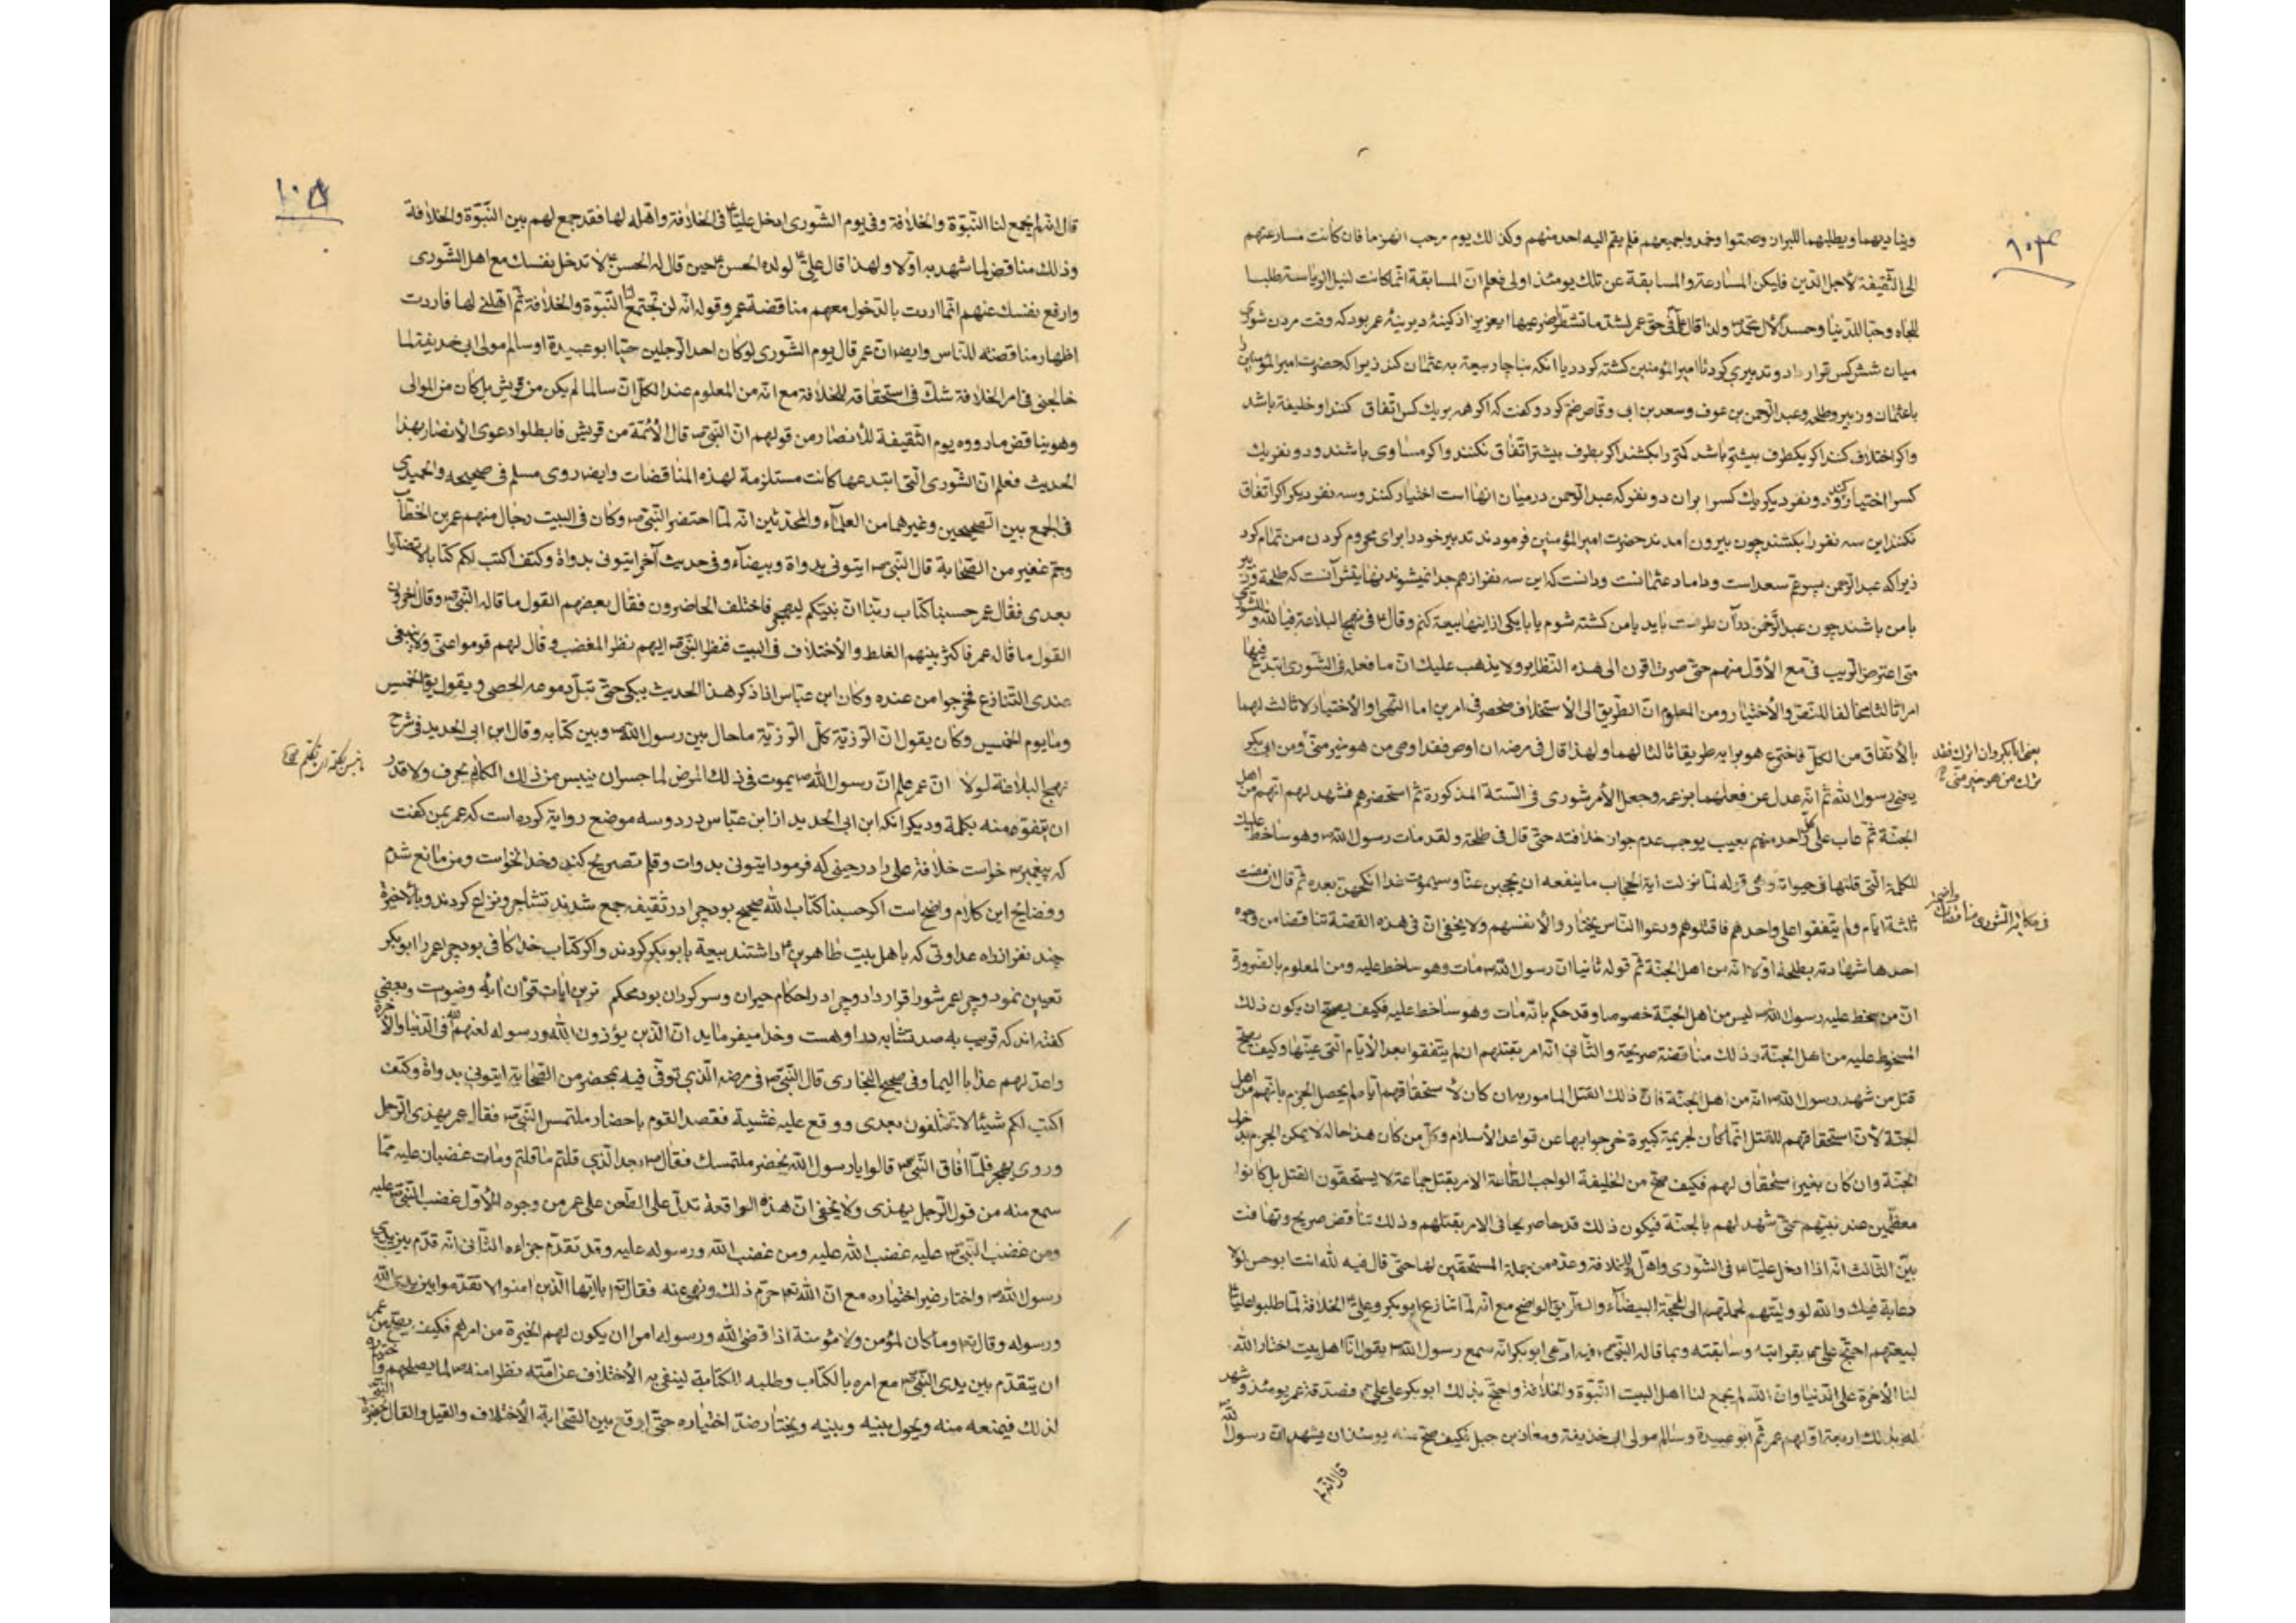 ١٠٤
ويناديهما ويطلبهما للبراز وصمتوا وخمدوا جميعهم فلم يقم اليه احد منهم وكذلك يوم مرحب انهزما فان كانت مسارعتهم
الى الثقيفة لاجل الدين فليكن المسارعة والمسابقة عن تلك يومئذ اولى فعلم ان المسابقة انما كانت لنيل الرياسة طلبا
للجاه وحبا للدنيا وحسدا لآل محمد ص ولذا قال علي ع فى حق عمر لشد ما تشطرا ضرعيها ايعزيز اذ كينۀ ديرينۀ عمر بود كه وقت مردن شورى
ميان شش كس قرار داد و تدبيرى كرد تا امير المؤمنين كشته كردد يا انكه بناچار بيعة به عثمان كند زيرا كه حضرت امير المؤمنين را
با عثمان و زبير و طلحه وعبد الرحمن بن عوف وسعد بن ابى وقاص ضم كرد و كفت كه اكر همه بر يك كس اتفاق كنند او خليفه باشد
واكر اختلاف كنند اكر يكطرف بيشتر باشد كمتر را بكشند اكر بطرف بيشتر اتفاق نكنند واكر مساوى باشند و دو نفر يك
كس را اختيار كنند و دو نفر ديكر يك كس را بران دو نفر كه عبد الرحمن درميان انها است اختيار كنند و سه نفر ديكر اكر اتفاق
نكنند اين سه نفر را بكشند چون بيرون امدند حضرت امير المؤمنين فرمودند تدبير خود را براى محروم كردن من تمام كرد
زيرا كه عبد الرحمن پسر عم سعد است و داماد عثمانست و دانست كه اين سه نفر از هم جدا نميشوند نهايتش آنست كه طلحة و زبير
با من باشند چون عبد الرحمن در آن طرفست بايد يا من كشته شوم يا با يكى از اينها بيعة كنم وقال ع فى نهج البلاغة فيا لله وللشورى
متى اعترض الريب فى مع الاول منهم حتى صرت اقرن الى هذه النظاير ولا يذهب عليك ان ما فعله فى الشورى ابتدع فيها
امرا ثالثا مخالفا للنص والاختيار ومن المعلوم ان الطريق الى الاستخلاف منحصر فى امرين اما النص او الاختيار لا ثالث لهما
بالاتفاق من الكل فاخترع هو برايه طريقا ثالثا لهما ولهذا قال فى مرضه ان اوص فقد اوصى من هو خير منى ومن ابى بكر
يعنى رسول الله ثم انه عدل عن فعلهما بزعمه وجعل الامر شورى فى الستة المذكورة ثم استحضرهم فشهد لهم انهم من اهل
الجنة ثم عاب على كل واحد منهم بعيب يوجب عدم جواز خلافته حتى قال فى طلحة ولقد مات رسول الله ص وهو ساخط عليك
للكلمة التى قلتها فى حيوته وهى قوله لما نزلت اية الحجاب ما ينفعه ان يحجبهن عنا وسيموت غدا انكحهن بعده ثم قال ان مضت
ثلثة ايام ولم يتفقوا على واحدهم فاقتلوهم ودعوا الناس يختاروا لانفسهم ولا يخفى ان فى هذه القصة تناقضا من وجوه
احدها شهادته بطلحة اولا انه من اهل الجنة ثم قوله ثانيا ان رسول الله ص مات وهو ساخط عليه ومن المعلوم بالضرورة
ان من سخط عليه رسول الله ص ليس من اهل الجنة خصوصا وقد حكم بانه مات وهو ساخط عليه فكيف يصح ان يكون ذلك
المسخوط عليه من اهل الجنة وذلك مناقضة صريحة والثانى انه امر بقتلهم ان لم يتفقوا بعد الايام التى عينها وكيف يصح
قتل من شهد رسول الله ص انه من اهل الجنة فان ذلك القتل المامور به ان كان لاستحقاقهم اياه لم يحصل الجزم بانهم من اهل
الجنة لان استحقاقهم للقتل انما كان لجريمة كبيرة خرجوا بها عن قواعد الاسلام وكل من كان هذا حاله لا يمكن الجزم بدخول
الجنة وان كان بغير استحقاق لهم فكيف صح من الخليفة الواجب الطاعة الامر بقتل جماعة لا يستحقون القتل بل كانوا
معظمين عند نبيهم حتى شهد لهم بالجنة فيكون ذلك قدحا صريحا فى الامر بقتلهم وذلك تناقض صريح وتهافت
بين الثالث انه اذا ادخل عليا ع فى الشورى واهل للخلافة وعده من جملة المستحقين لها حتى قال فيه لله انت ابو حسن لولا
دعابة فيك والله لو وليتهم لحملتهم الى المحجة البيضاء والطريق الواضح مع انه لما تنازع ابو بكر وعلى ع الخلافة لما طلبوا عليا ع
لبيعتهم احتج على ع بقرابته وسابقته وبما قاله النبى ص فيه ادعى ابو بكر انه سمع رسول الله ص يقول انا اهل بيت اختار الله
لنا الاخرة على الدنيا وان الله لم يجمع لنا اهل البيت النبوة والخلافة واحتج بذلك ابو بكر على على ع فصدقه عمر يومئذ وشهد
له بذلك اربعة اولهم عمر ثم ابو عبيدة وسالم مولى ابى حذيفة ومعاذ بن جبل فكيف صح منه يومئذ ان يشهد ان رسول الله
قال انه لم
يعنى ابا بكر وان اترك فقد
ترك من هو خير منى
فى مكايد الشورى مناقضات
١٠٥
قال انه لم يجمع لنا النبوة والخلافة وفى يوم الشورى ادخل عليا ع فى الخلافة واهله لها فقد جمع لهم بين النبوة والخلافة
وذلك مناقض لما شهد به اولا ولهذا قال على ع لولده الحسن ع حين قال له الحسن ع لا تدخل بنفسك مع اهل الشورى
وارفع نفسك عنهم انما اردت بالدخول معهم مناقضة عمر وقوله انه لن تجتمع لنا النبوة والخلافة ثم اهلنى لها فاردت
اظهار مناقضته للناس وايضا ان عمر قال يوم الشورى لو كان احد الرجلين حيا ابو عبيدة او سالم مولى ابى حذيفة لما
خالجنى فى امر الخلافة شك فى استحقاقه للخلافة مع انه من المعلوم عند الكل ان سالما لم يكن من قريش بل كان من الموالى
وهو يناقض ما رووه يوم الثقيفة للانصار من قولهم ان النبى ص قال الائمة من قريش فابطلوا دعوى الانصار بهذا
الحديث فعلم ان الشورى التى ابتدعها كانت مستلزمة لهذه المناقضات وايضا روى مسلم فى صحيحه والحميدى
فى الجمع بين الصحيحين وغيرهما من العلماء والمحدثين انه لما احتضر النبى ص وكان فى البيت رجال منهم عمر بن الخطاب
وجم غفير من الصحابة قال النبى ص ايتونى بدواة وبيضاء وفى حديث آخر ايتونى بدواة وكتف اكتب لكم كتابا لا تضلوا
بعدى فقال عمر حسبنا كتاب ربنا ان نبيكم ليهجر فاختلف الحاضرون فقال بعضهم القول ما قاله النبى ص وقال اخرون
القول ما قاله عمر فاكثر بينهم الغلط والاختلاف فى البيت فنظر النبى ص اليهم نظر المغضب وقال لهم قوموا عنى ولا ينبغى
عندى التنازع فخرجوا من عنده وكان ابن عباس اذا ذكر هذا الحديث يبكى حتى تبل دموعه الحصى ويقول يوم الخميس
وما يوم الخميس وكان يقول ان الرزية كل الرزية ما حال بين رسول الله ص وبين كتابه وقال ابن ابى الحديد فى شرح
نهج البلاغة لولا ان عمر علم ان رسول الله ص يموت فى ذلك المرض لما جسر ان ينبس من ذلك الكلام بحرف ولا قدر
ان يتفوه منه بكلمة وديكر انكه ابن ابى الحديد از ابن عباس در دو سه موضع رواية كرده است كه عمر بمن كفت
كه پيغمبر ص خواست خلافة على را در حينى كه فرمود ايتونى بدوات وقلم تصريح كند وخدا نخواست ومن مانع شدم
و فضايح اين كلام واضح است اكر حسبنا كتاب الله صحيح بود چرا در ثقيفه جمع شدند تشاجر و نزاع كردند وبالاخره
چند نفر از راه عداوتى كه با هل بيت طاهرين ع داشتند بيعة بابو بكر كردند واكر كتاب خدا كافى بود چرا عمر را ابو بكر
تعيين نمود و چرا عمر شورا قرار داد و چرا در احكام حيران و سركردان بود محكم ترين ايات قرآن آيه وضوست وبعضى
كفته اند كه قريب به صد تشابه در او هست وخدا ميفرمايد ان الذين يؤذون الله ورسوله لعنهم الله فى الدنيا والآخرة
واعد لهم عذابا اليما وفى صحيح البخارى قال النبى ص فى مرضه الذى توفى فيه بمحضر من الصحابة ايتونى بدواة وكتف
اكتب لكم شيئا لا تختلفون بعدى ووقع عليه غشية فقصد القوم باحضار ملتمس النبى ص فقال عمر يهذى الرجل
وروى يهجر فلما افاق النبى ص قالوا يا رسول الله يحضر ملتمسك فقال ص بعد الذى قلتم ما قلتم ومات غضبان عليه مما
سمع منه من قول الرجل يهذى ولا يخفى ان هذه الواقعة تدل على الطعن على عمر من وجوه الاول غضب النبى ص عليه
ومن غضب النبى ص عليه غضب الله عليه ومن غضب الله ورسوله عليه وقد تقدم جزاءه الثانى انه قدم بين يدى
رسول الله ص واختار غير اختياره مع ان الله تع حرم ذلك ونهى عنه فقال تع يا ايها الذين امنوا لا تقدموا بين يدى الله
ورسوله وقال تع وما كان لمؤمن ولا مؤمنة اذا قضى الله ورسوله امرا ان يكون لهم الخيرة من امرهم فكيف يصح من عمر
ان يتقدم بين يدى النبى ص مع امره بالكتاب وطلبه للكتابة لينفى به الاختلاف عن امته نظرا منه ص لما يصلحهم
لذلك فيمنعه منه ويحول بينه وبينه ويختار ضد اختياره حتى اوقع بين الصحابة الاختلاف والقيل والقال بحضرة النبى